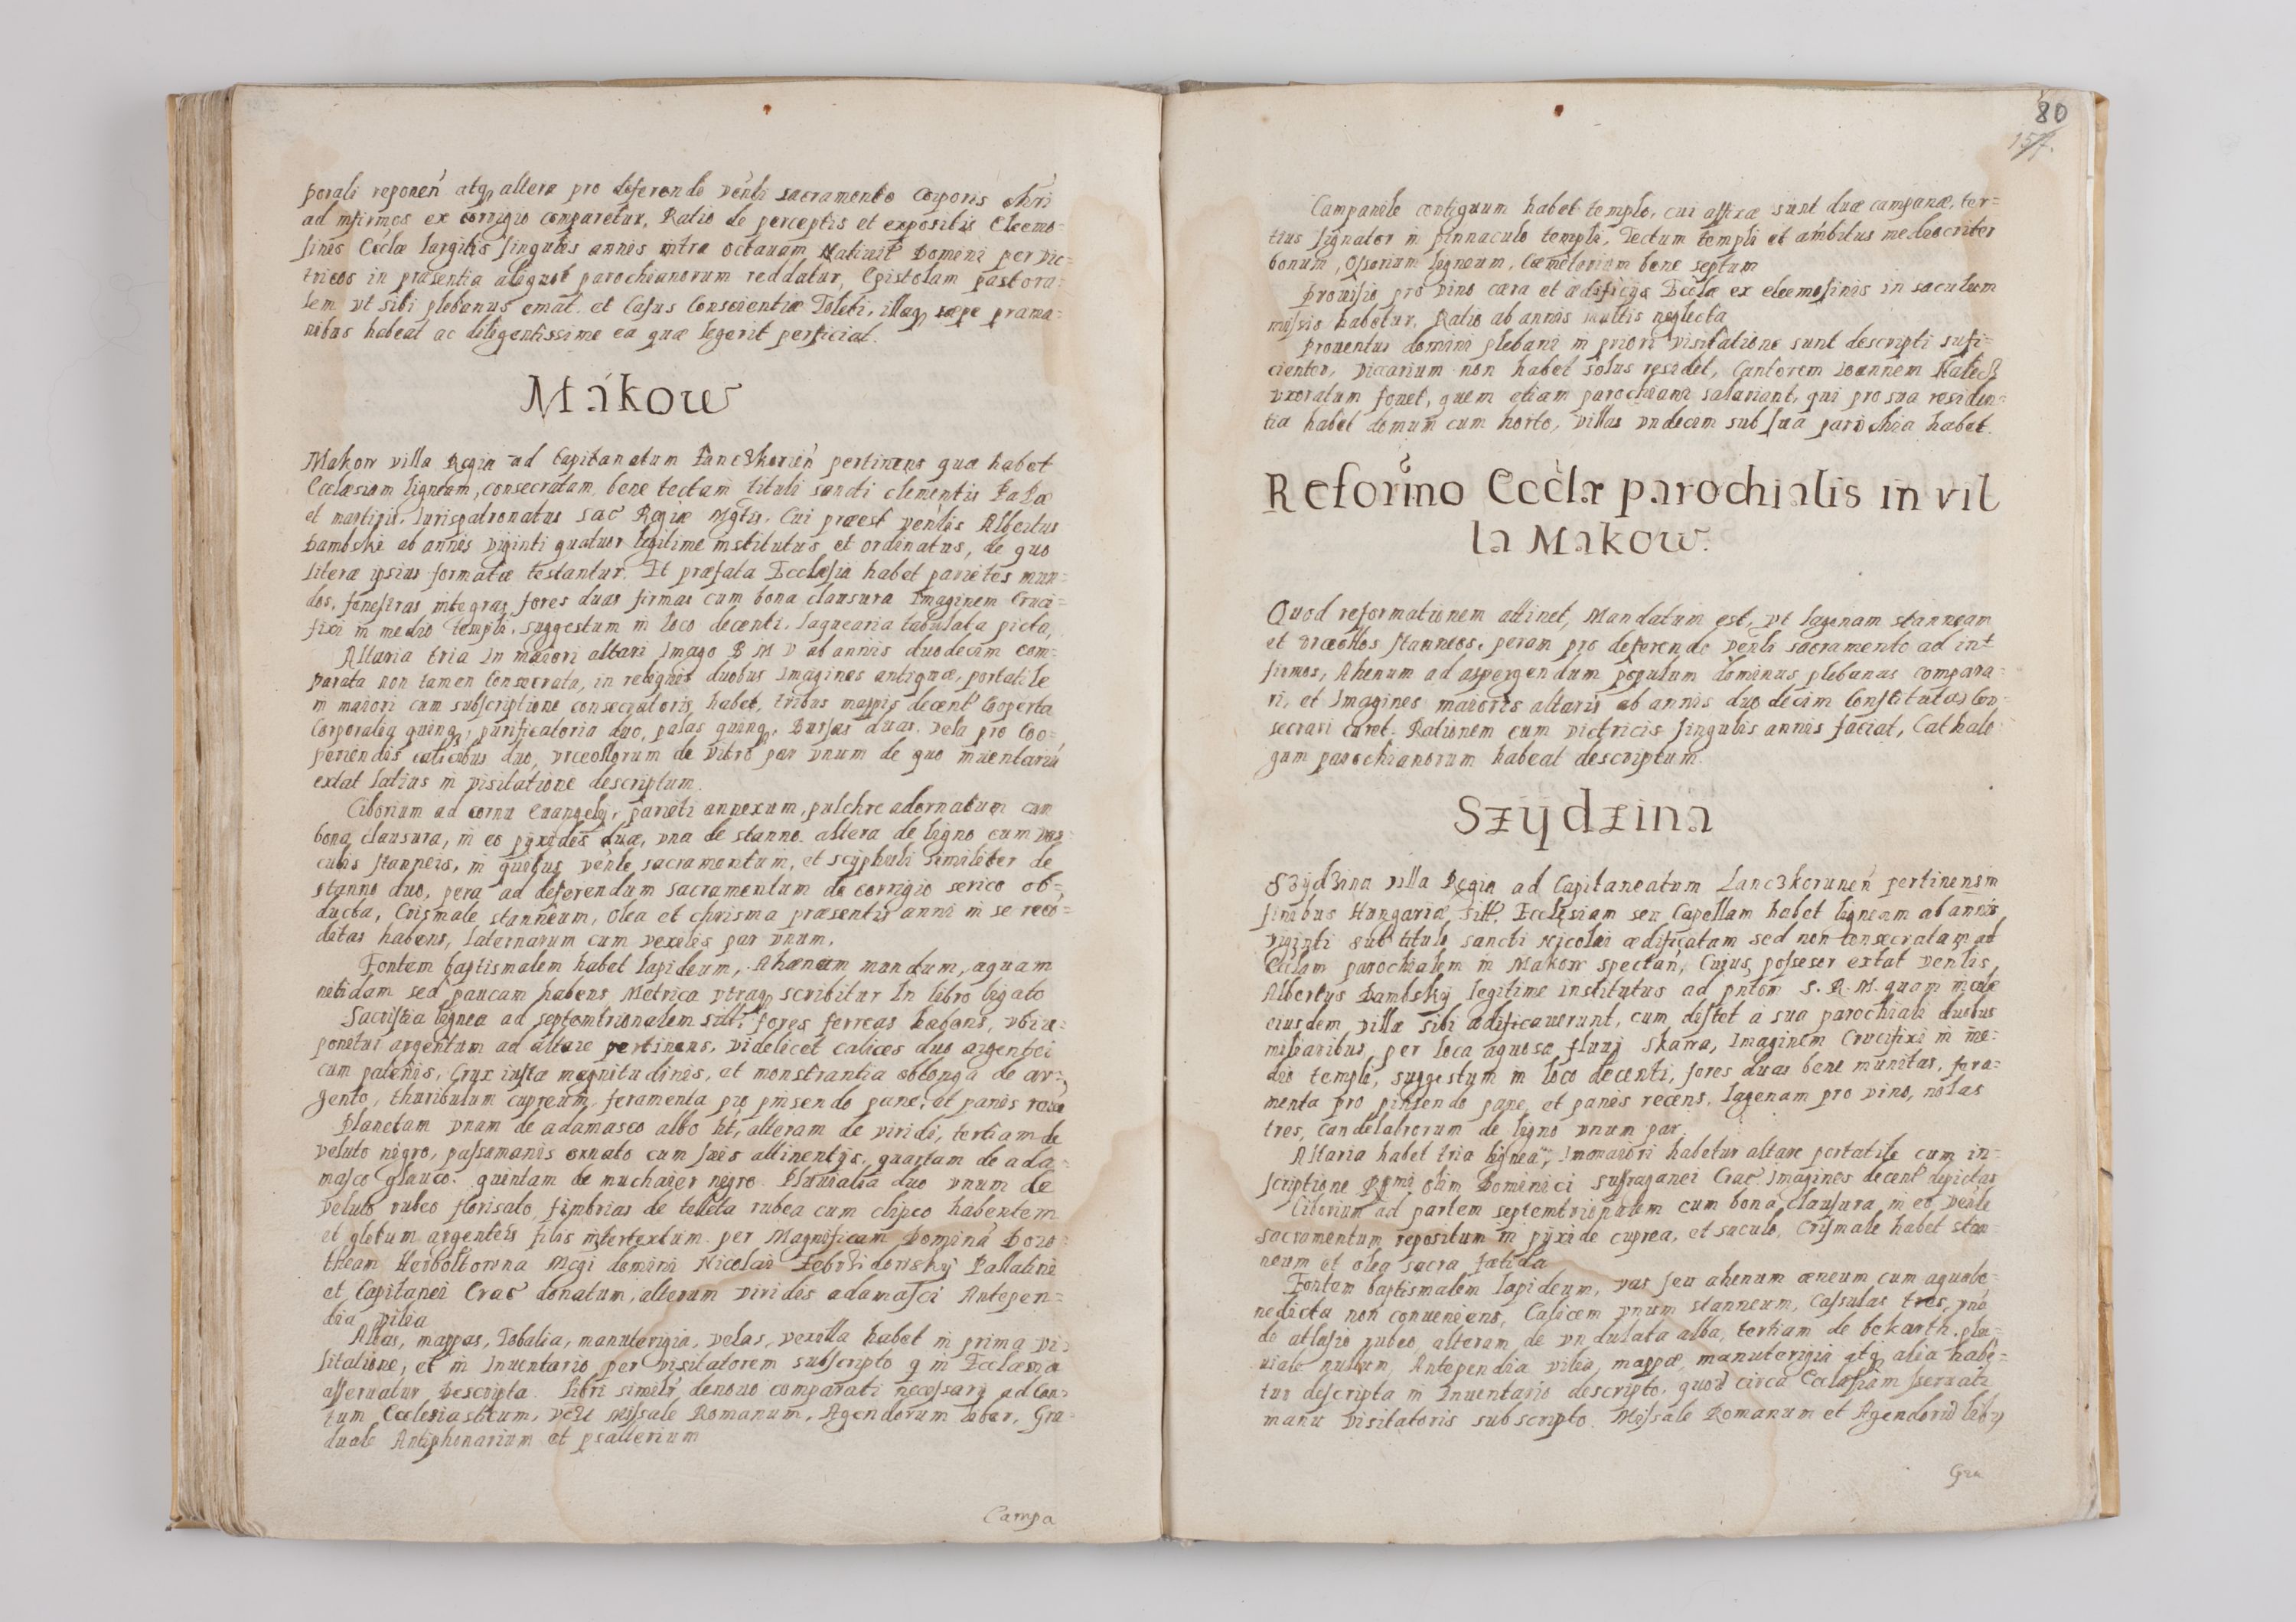 porali reponen̄ atq; altera pro deferendo venli sacramento Corporis chri
ad infirmos ex corrigio comparetur, Ratio de perceptis et expositis Eleemo-
sinis Ecclæ largitis singulis annis intra octauam Natiuit Domini per vic-
tricos in præsentia aliquot parochianorum reddatur, Epistolam pastora-
lem vt sibi plebanus emat. et Casus Conscientiæ Toleti, illaq; sæpe præ ma-
nibus habeat ac diligentissime ea quæ legerit perficiat.
Makow
Makow villa Regia ad Capitanatum Lanczkorien̄ pertinens quæ habet
Ecclæsiam ligneam, consecratam bene tectam tituli sancti clementis PaPæ
et martiris. Iurispatronatus Sac Regiæ Mgtis. Cui præest venlis Albertus
Dambski ab annis viginti quatuor legitime institutus et ordinatus, de quo
literæ ipsius formatæ testantur. Et præfata Ecclesia habet parietes mun-
dos, fenestras integras fores duas firmas cum bona clausura Imaginem Cruci-
fixi in medio templi, suggestum in loco decenti. laquearia tabulata picta,
Altaria tria In maiori altari Imago B M V ab annis duodecim com-
parata non tamen Consecrata, in reliquis duobus Imagines antiquæ, portatile
in maiori cum subscriptione consecratoris habet, tribus mappis decent Cooperta
Corporalia quinq;, purificatoria duo, palas quinq;, Bursas duas. vela pro Coo-
periendis calicibus duo, vrceollorum de vitro par vnum de quo inuentariū
extat latius in visitatione descriptum.
Ciborium ad cornu Euangelij, parieti annexum, pulchre adornatum cum
bona clausura, in eo pÿxides duæ, vna de stanno. altera de ligno cum vas-
culis stanneis, in quibus venle sacramentum, et scÿphuli similiter de
stanno duo, pera ad deferendum sacramentum de corrigio serico ob-
ducta, Crismale stanneum, Olea et chrisma præsentis anni in se recō-
ditas habens, laternarum cum vexelis par vnum.
Fontem baptismalem habet lapideum, Ahæneum mundum, aquam
nitidam sed paucam habens Metrica vtraq; scribitur In libro ligato
Sacristia lignea ad septemtrionalem sitt; fores ferreas habens, vbi re-
ponetur argentum ad altare pertinens, videlicet calices duo argentei
cum patenis, Crux iustæ magnitudinis, et monstrantia oblonga de ar-
gento, thuribulum cupreum, feramenta pro pinsendo pane, et panis
Planetam vnam de adamasco albo ht, alteram de viridi, tertiam de
veluto nigro, passamanis ornato cum suis attinentijs, quartam de ada-
masco glauco. quintam de muchaier negro. Pluuialia duo vnum de
veluto rubeo florisato, fimbrias de teleta rubea cum clipeo habentem
et glotum argenteis filis intertextum per Magnificam Dominā Doro-
theam Herboltowna Mcgi domini Nicolai Zebrzidowskÿ Pallatini
et Capitanei Crac donatum, alterum viridis adamasci Antepen-
dia vilia
Albas, mappas, Tobalia, manuterigia, velas, vexilla habet in prima vi-
sitatione, et in Inuentario per visitatorem subscripto q in Ecclæsia
asseruatur Descripta. Libri similr̄ denouo comparati necessarij ad Can-
tum Ecclesiasticum, velt Missale Romanum, Agendorum liber, Gra-
duale Antiphonarium et psalterium
Campa
80
157.
Campanile contiguum habet templo, cui affixæ sunt duæ campanæ, ter-
tius signator in pinnaculo templi, Tectum templi et ambitus mediocriter
bonum, Ossorium ligneum, Cœmeterium bene septum
Prouisio pro vino cæra et ædificijs Ecclæ ex eleemosinis in saculum
missis habetur. Ratio ab annis multis neglecta
Prouentus domini plebani in priori visitatione sunt descripti sufi-
cienter, viccarium non habet solus residet, Cantorem ioannem
vxoratum fouet, quem etiam parochiani salariant, qui pro sua residen-
tia habet domum cum horto, villas vndecim sub sua parochia habet.
Reformo Ecclæ parochialis in vil
la Makow.
Quod reformationem attinet, Mandatum est, vt lagenam stanneam
et vrceollos stanneos, peram pro deferendo venli sacramento ad in-
firmos, Ahenum ad aspergendum populum dominus plebanus compara-
ri, et Imagines maioris altaris ab annis duodecim Constitutas Con-
secrari curet. Rationem cum victricis singulis annis faciat, Cathalo
gum parochianorum habeat descriptum.
Szÿdzina
Szÿdzina villa Regia ad Capitaneatum Lanczkorunen̄ pertinens in
finibus Hungariæ sitt. Ecclesiam seu Capellam habet ligneam ab annis
viginti sub titulo sancti Nicolai ædificatam sed non consecratam ad
Ecclam parochialem in Makow spectan̄, Cuius posseser extat venlis
Albertus Dambskÿ legitime institutus ad pntōm S. R. M. quam incolæ
eiusdem villæ sibi ædificauerunt, cum distet a sua parochiali duobus
miliaribus per loca aquosa fluuij Skawa, Imaginem Crucifixi in me-
dio templi, suggestum in loco decenti, fores duas bene munitas, fera-
menta pro pinsendo pane, et panis recens, lagenam pro vino, nolas
tres, candelabrorum de ligno vnum par.
Altaria habet tria lignea, In maiori habetur altare portatile cum in-
scriptione Rymi olim Dominici suffraganei Crac Imagines decent depictas
Ciborium ad partem septemtrionalem cum bona clausura in eo venle
sacramentum repositum in pÿxide cuprea, et saculo, Crismale habet stan-
neum et olea sacra fœtida
Fontem baptismalem lapideum, vas seu ahenum æneum cum aqua be-
nedicta non conueniens, Calicem vnum stanneum, Casulas tres, vnā
de atlasio rubeo alteram de vndulata alba, tertiam de bekarth. plu-
uiale nullum, Antependia vilia, mappæ, manuterigia atq; alia habē-
tur descripta in Inuentario descripto, quod circa Ecclesiam seruati
manu visitatoris subscripto. Missale Romanum et Agendorū libr
Gra